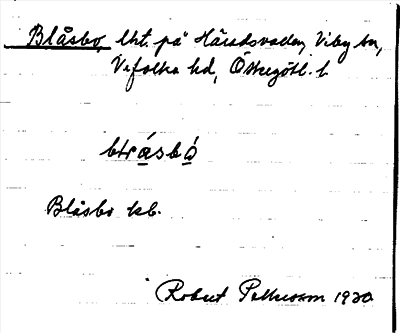 Blåsbo, lht. på Häradsveden, Viby sn,
Vifolka hd, Östergötl. l.
blråsbó
Blåsbo kb.
Robert Pettersson 1930